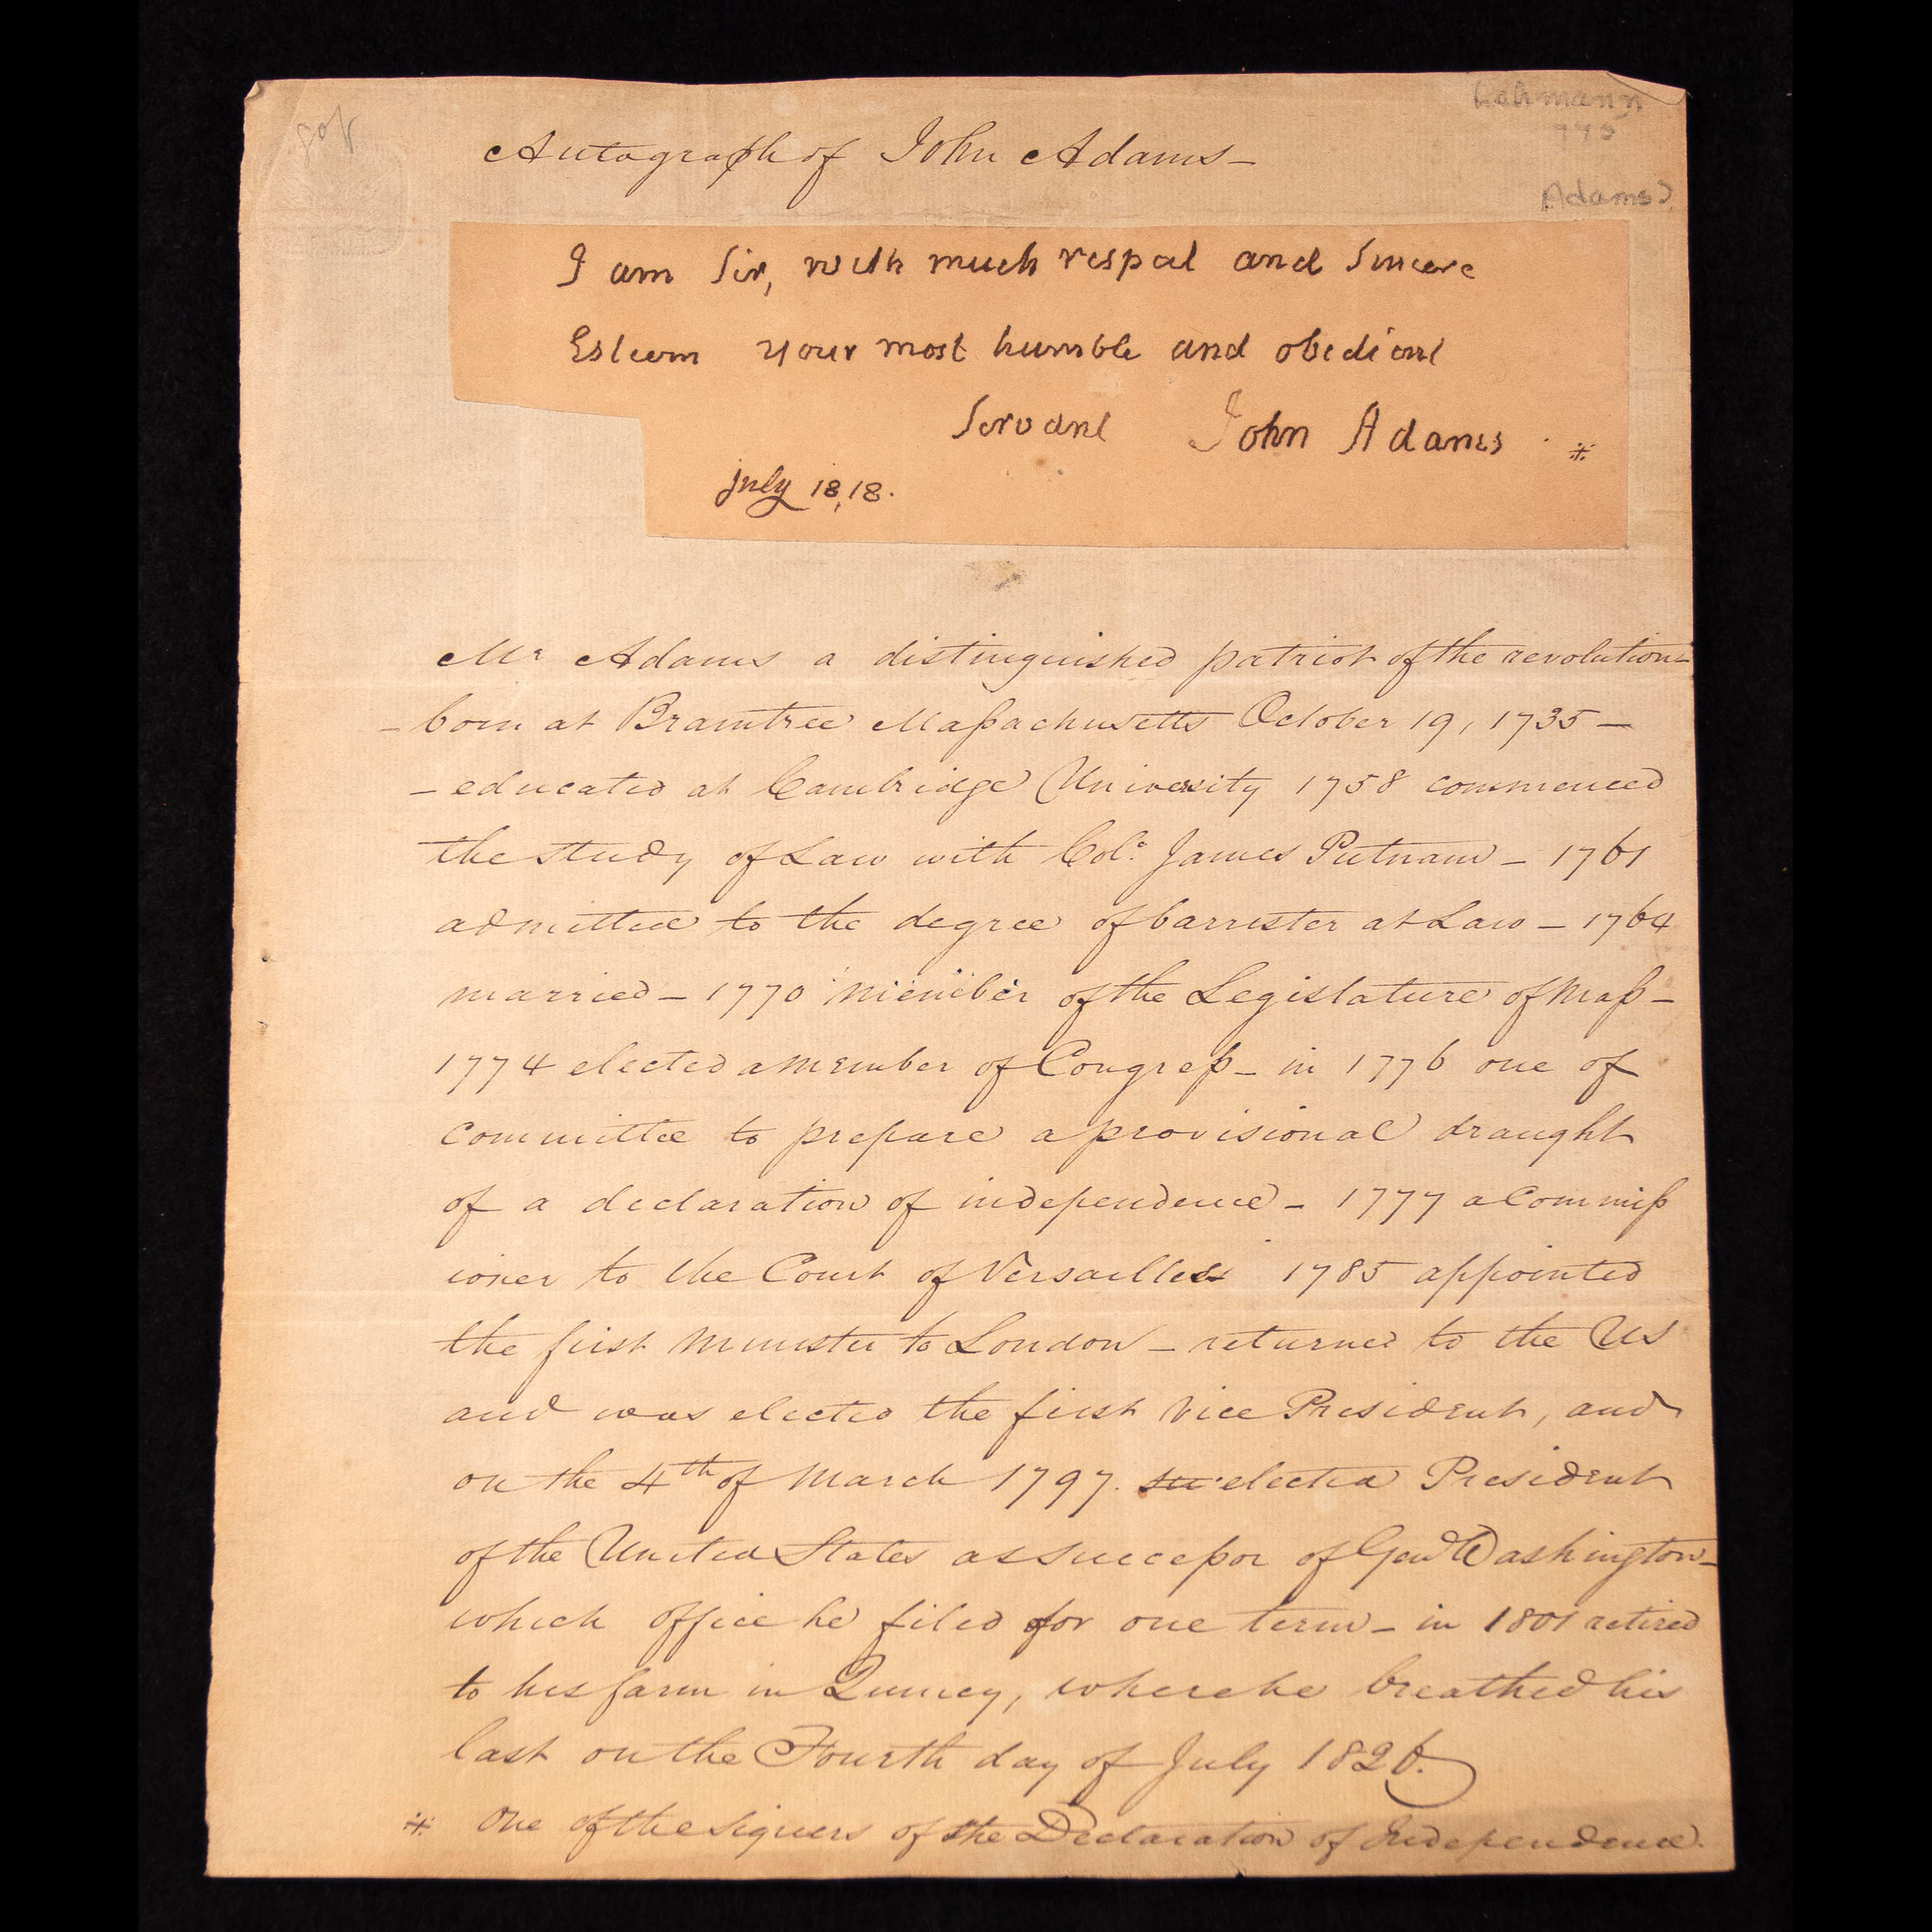 Autograph of John Adams –
Adams
I am Sir, with much respect and Sincere
Esteem your most humble and obedient
Servant John Adams ⁜
july 18, 18.
Mr Adams a distinguished patriot of the revolution –
– born at Braintree Massachusetts October 19, 1735 –
– educated at Cambridge University 1758 commenced
the study of Law with Col. James Putnam – 1761
admitted to the degree of barrester at Law – 1764
married – 1770 member of the Legislature of Mass –
1774 elected a member of Congress – in 1776 one of
committee to prepare a provisional draught
of a declaration of independence – 1777 a Commiss
ioner to the Court of Versailles 1785 appointed
the first Minister to London – returned to the US
and was elected the first Vice President, and
on the 4th of March 1797. elected President
of the United States as successor of Genl Washington –
which office he filed for one term – in 1801 retired
to his farm in Quincy, where he breathed his
last on the Fourth day of July 1826.
⁜ One of the Signers of the Declaration of Independence.